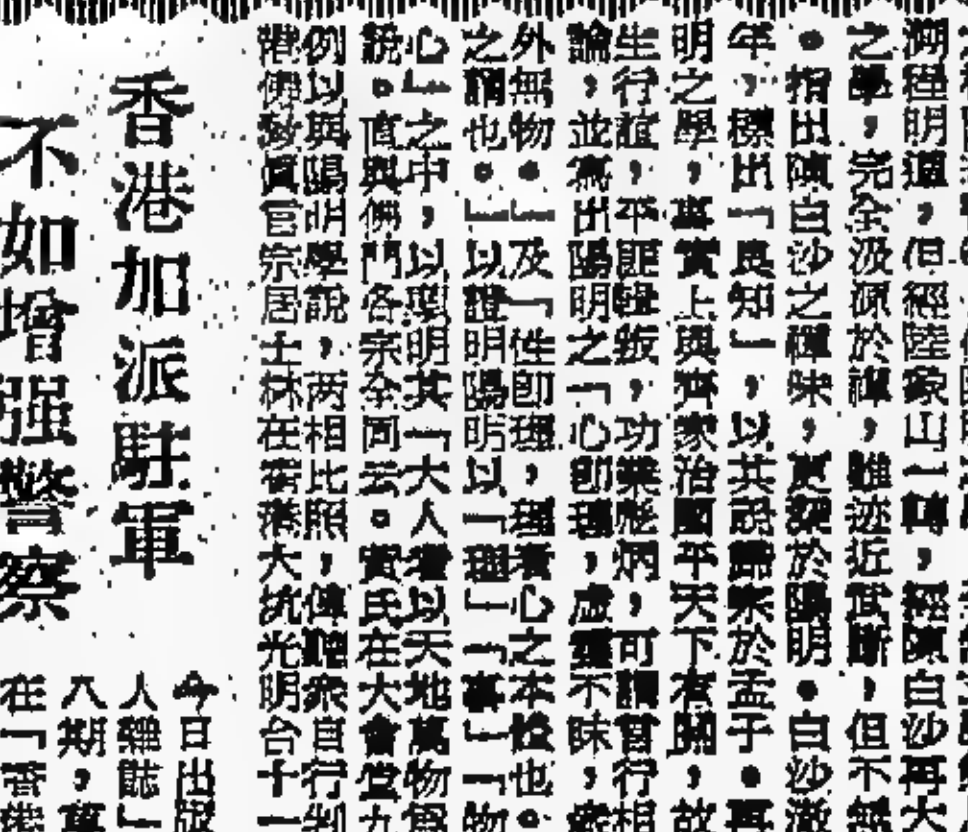 溯程明道，但經陸象山一轉，經陳白沙再大
之學，完全汲源於禪，雖迹近武斷，但不無
。指出陳白沙之禪味，更契於陽明。白沙激
年，標出「良知」，以其說歸示於孟子。再
明之學，事實上與齊家治國平天下有關，故
生行誼，平匪輯叛，功業彪炳，可謂言行相
論，並寫出陽明之「心即理，虛靈不昧，衆
外無物。」及「性即理，理者心之本體也。
之謂也。」以證明陽明以「理」「事」「物
心」之中，以說明其「大人者以天地萬物爲
說。直與佛門各宗全同云。實氏在大會堂九
例以與陽明學說，两相比照，俾聽衆自行判
港佛教眞言宗居士林在香港大坑光明台十一
香港加派駐軍
不如增强警察
今日出版
人聯誌」
八期，萬
在「香港